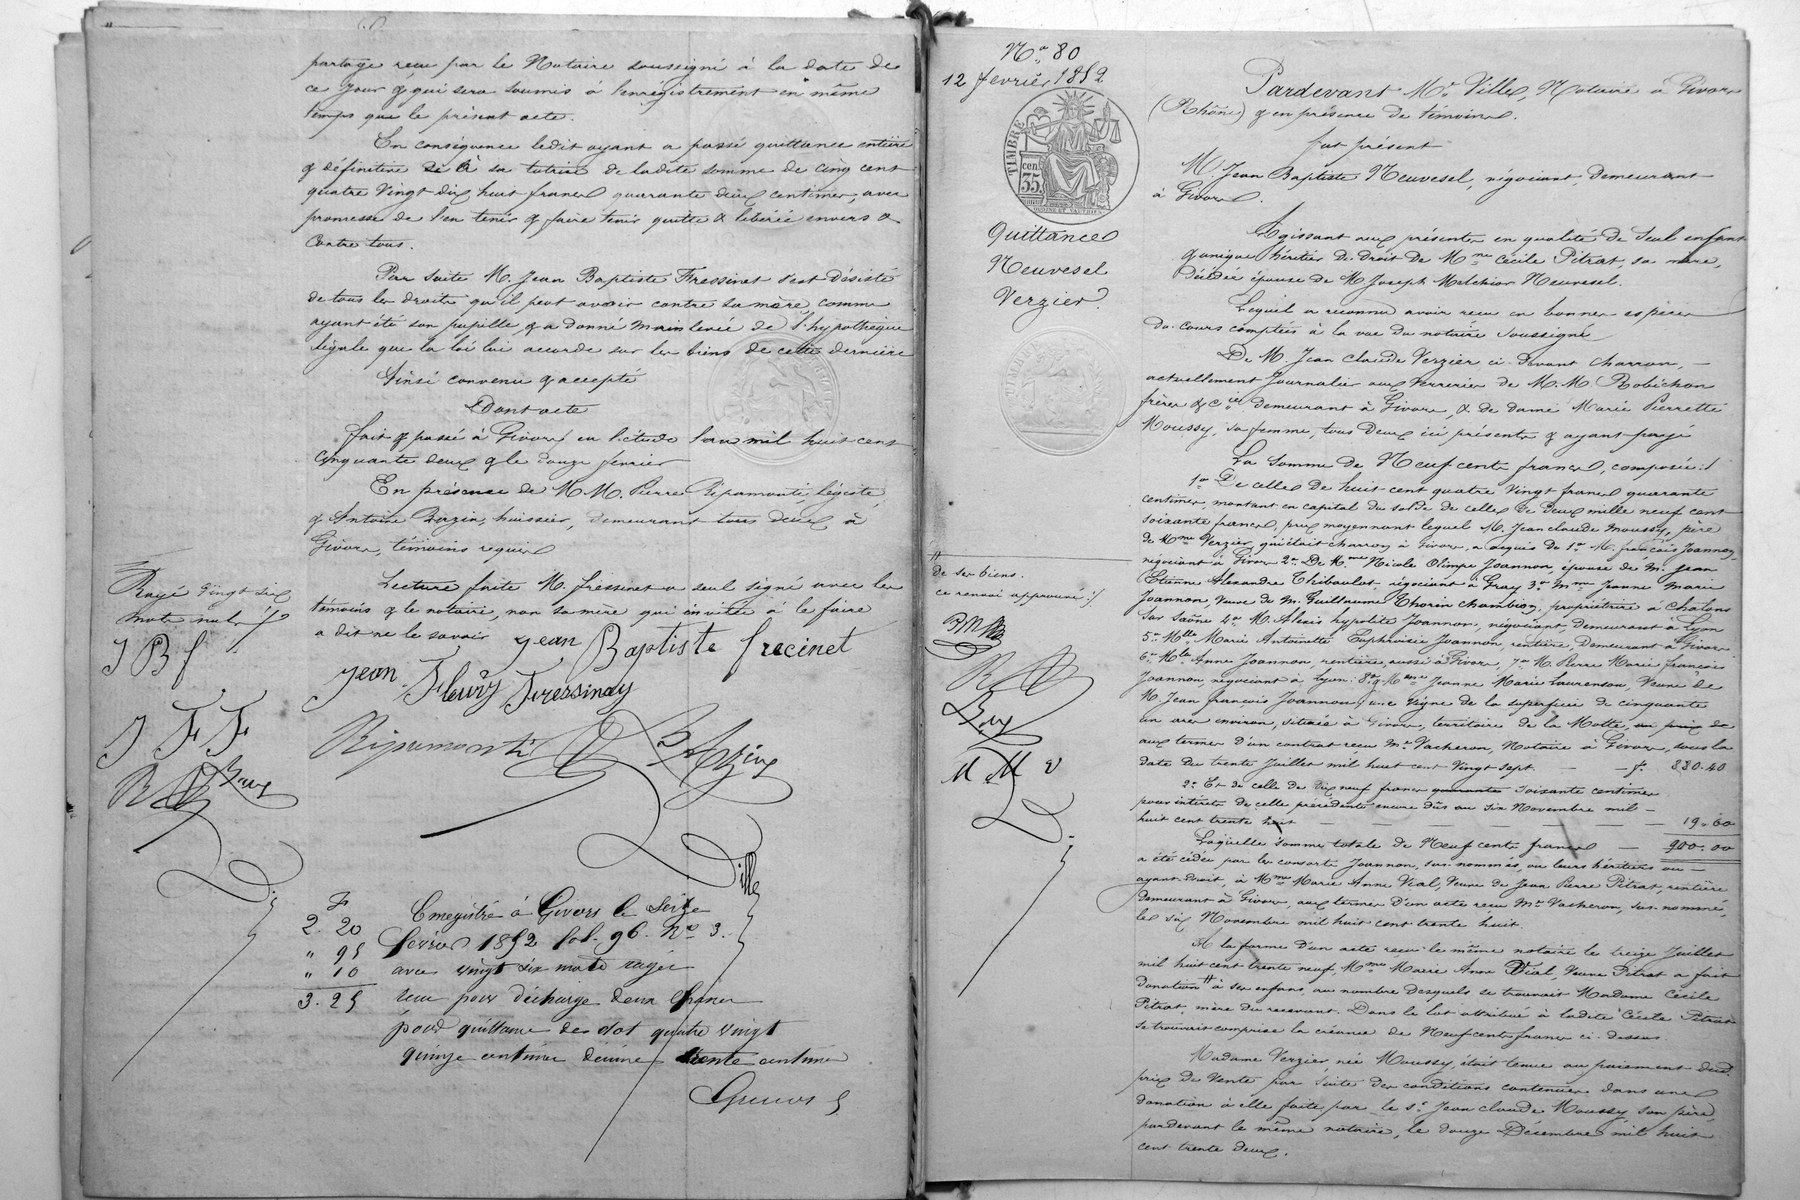 partage reçu par le Notaire soussigné à la date de
ce jour & qui sera soumis à l'enregistrement en même
temps que le présent acte.
En conséquence ledit ayant a passé quittance entière
& définitive de à sa tutrice de ladite somme de cinq cent
quatre vingt dix huit francs quarante deux centimes, avec
promesse de l'en tenir & faire tenir quitte & libérée envers &
contre tous.
Par suite M. Jean Baptiste Fressinet s'est désisté
de tous les droits qu'il peut avoir contre sa mère, comme
ayant été son pupille, & a donné main levée de l'hypothèque
légale que la loi lui accorde sur les biens de cette dernière
Ainsi convenu & accepté
Dont acte
fait & passé à Givors en l'étude l'an mil huit cent
cinquante deux & le douze février
En présence de M.M. Pierre Ripamonti, légiste,
& Antoine Berzin, huissier, demeurant tous deux à
Givors, témoins requis
Lecture faite M. fressinet a seul signé avec les
témoins & le notaire, non sa mère qui invitée à le faire
a dit ne le savoir
Rayé vingt six
mots nuls
J B f
J F F
jean Baptiste frecinet
jean Fleury Fressinay
Ripamonti
Ville
F
2. 20
" 95
" 10
3. 25
Enregistré à Givors le seize
février 1852 fol. 96. No. 3.
avec vingt six mots rayés
reçu pour décharge deux francs
pour quittance de dot quatre vingt
quinze centimes décime trente centimes
No. 80
12 février 1852
TIMBRE
cen
35
Quittance
Neuvesel
Verzier
Pardevant Me. Ville, Notaire à Givors
(Rhône) & en présence de témoins.
fut présent
M. Jean Baptiste Neuvesel, négociant, demeurant
à Givors.
Agissant aux présentes en qualité de seul enfant
& unique héritier de droit de Mme Cécile Pitrat, sa mère,
décédée épouse de M. Joseph Melchior Neuvesel.
Lequel a reconnu avoir reçu en bonnes espèces
du cours comptées à la vue du notaire soussigné
De M. Jean claude Verzier ci devant charron,
actuellement journalier aux Verreries de M.M. Robichon
frères & Cie demeurant à Givors, & de dame Marie Pierrette
Moussy, sa femme, tous deux ici présents & ayant payé
La somme de Neuf cents francs, composée :
1o. De celle de huit cent quatre vingt francs quarante
centimes, montant en capital du solde de celle de deux mille neuf cent
soixante francs, prix moyennant lequel M. Jean claude Moussy, père
de Mme Verzier, qui était charron à Givors, a acquis de 1o. M. françois Joannon,
négociant à Givors 2o. De Mme Nicole Olimpe Joannon, épouse de M. Jean
Etienne Alexandre Thibaulot, négociant à Gray 3o. Mme Jeanne Marie
Joannon, Veuve de M. Guillaume Thorin Chambion, propriétaire à Châlons
sur Saône 4o. M. Alexis hypolite Joannon, négociant, demeurant à Lyon
5o. Mlle Marie Antoinette Euphroisie Joannon, rentière, demeurant à Givors
6o. Mlle Anne Joannon, rentière, aussi à Givors, 7o. M. Pierre Marie françois
Joannon, négociant à Lyon : 8o. & Mme Jeanne Marie Laurenson, Veuve de
M. Jean françois Joannon, une vigne de la superficie de cinquante
un ares environ, située à Givors, territoire de la Motte, au prix de
aux termes d'un contrat reçu Me. Vacheron, Notaire à Givors, sous la
date du trente Juillet mil huit cent vingt sept. — — f. 880. 40
2o. Et de celle de dix neuf francs quarante soixante centimes
pour intérêts de celle précédente encore dûs au six Novembre mil
huit cent trente huit — 19. 60
Laquelle somme totale de Neuf cents francs — 900. 00
a été cédée par les consorts Joannon, sus-nommés, ou leurs héritiers ou
ayant-droit, à Mme Marie Anne Vial, Veuve de Jean Pierre Pitrat, rentière
demeurant à Givors, aux termes d'un acte reçu Me. Vacheron, sus-nommé,
le six Novembre mil huit cent trente huit.
A la forme d'un acte reçu le même notaire le treize Juillet
mil huit cent trente neuf, Mme Marie Anne Vial, Veuve Pitrat a fait
donation # à ses enfans au nombre desquels se trouvait Madame Cécile
Pitrat, mère du recevant. Dans le lot attribué à ladite Cécile Pitrat
se trouvait comprise la créance de Neuf cents francs ci-dessus.
Madame Verzier, née Moussy, était tenue au paiement dud.
prix de Vente par suite des conditions contenues dans une
donation à elle faite par le sr. Jean claude Moussy son père,
pardevant le même notaire, le douze Décembre mil huit
cent trente deux.
#
de ses biens.
ce renvoi approuvé
M M V